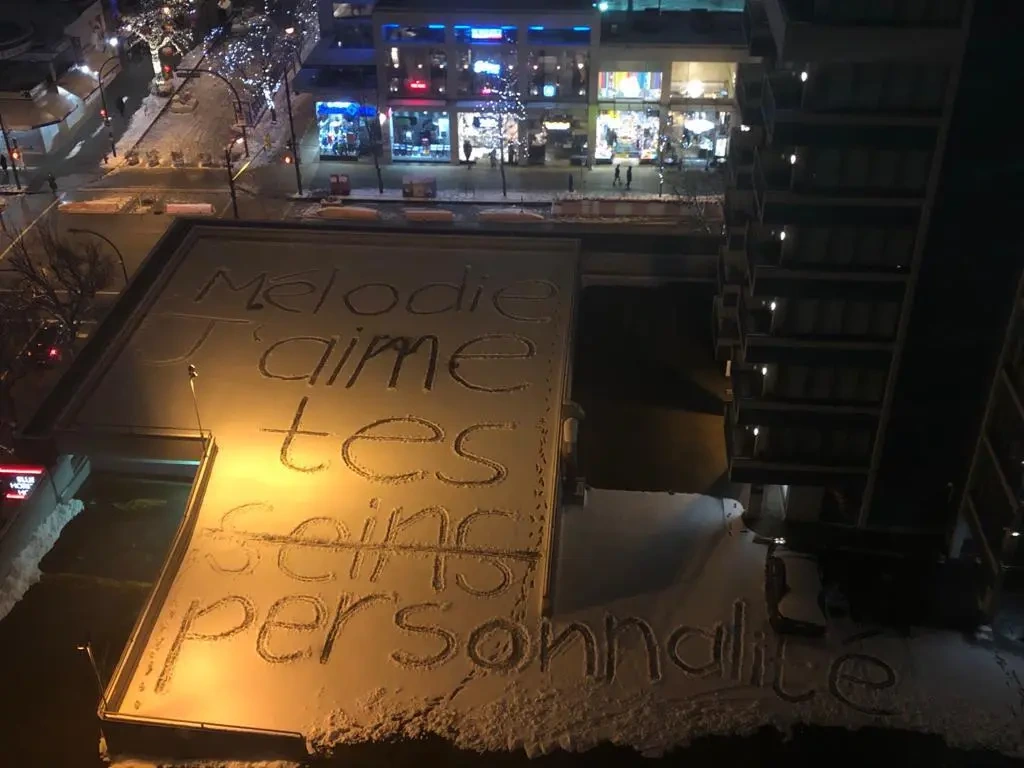 Mélodie
J'aime
tes
seins
personnalité